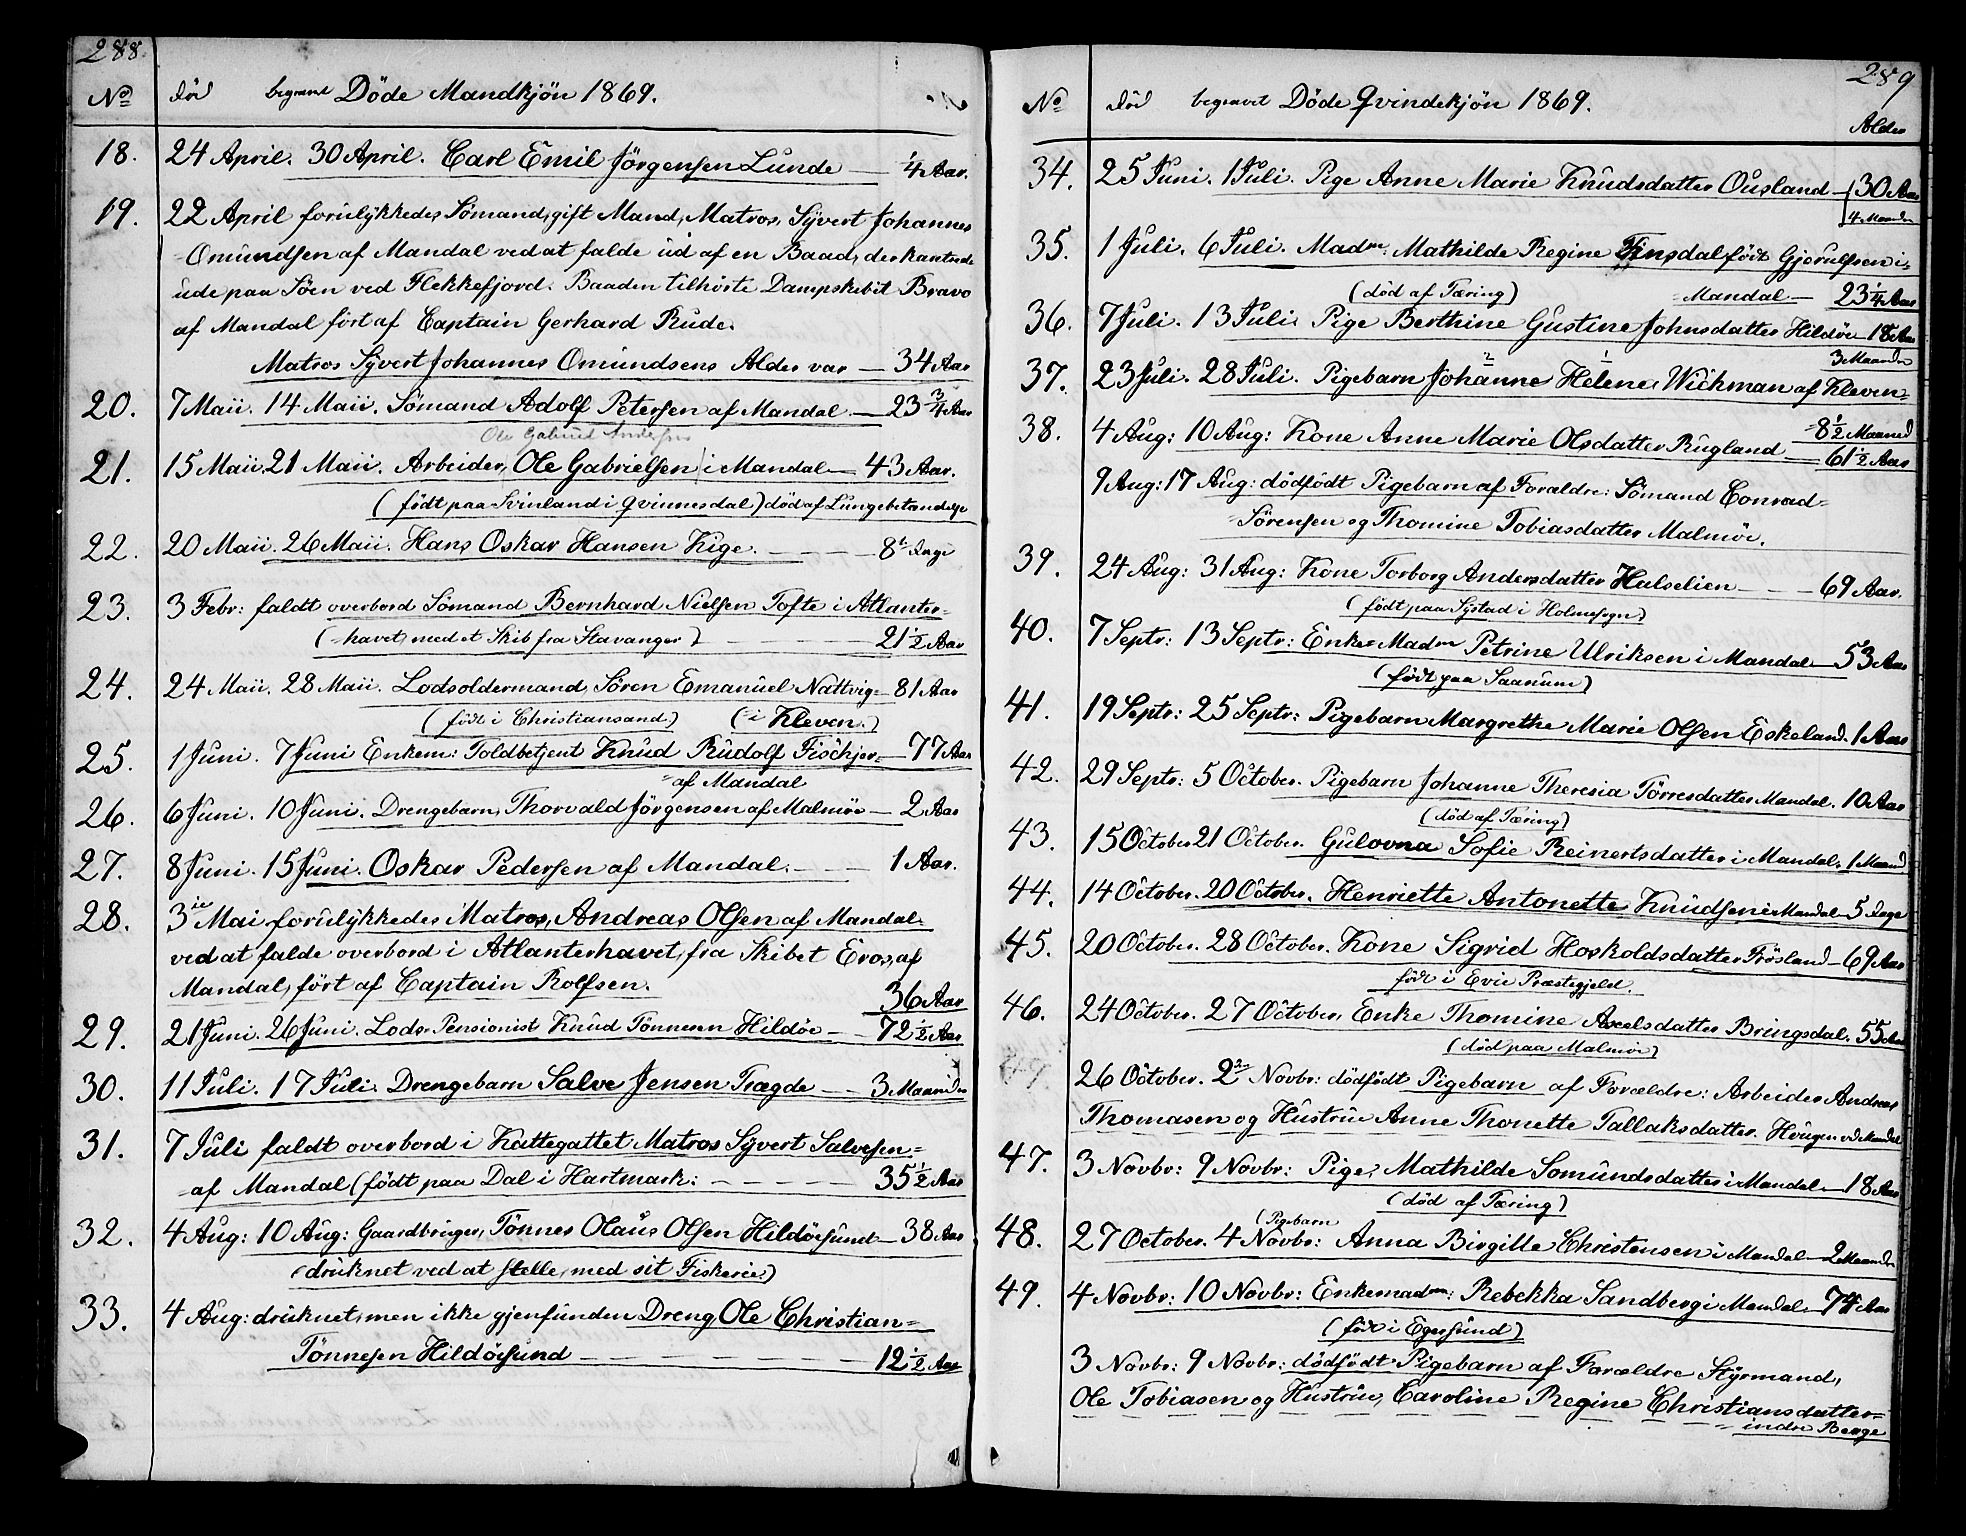 288.
No død begravet Döde Mandkjön 1869.
18. 24 April. 30 April. Carl Emil Jörgensen Lunde — 1/4 Aar.
19. 22 April forulykkedes Sömand, gift Mand, Matros, Syvert Johannes
Omundsen af Mandal ved at falde ud af en Baad, der kantrede
ude paa Söen ved Flekkefjord. Baaden tilhörte Dampskibet Bravo
af Mandal fört af Captain Gerhard Rude.
Matros Syvert Johannes Omundsens Alder var — 34 Aar
20. 7 Maii. 14 Maii. Sömand Adolf Petersen af Mandal. — 23 3/4 Aar
Ole Gabriel Andersen
21. 15 Maii. 21 Maii. Arbeider, Ole Gabrielsen i Mandal — 43 Aar.
(födt paa Svinland i Qvinnesdal) död af Lungebetændelse
22. 20 Maii. 26 Maii. Hans Oskar Hansen Kige. — 8 Dage
23. 3 Febr: faldt overbord Sömand Bernhard Nielsen Tofte i Atlanter=
(=havet, med et Skib fra Stavanger) 21 1/2 Aar
24. 24 Maii. 28 Maii. Lodsoldermand, Sören Emanuel Nattvig= 81 Aar
(födt i Christiansand.) (=i Kleven.)
25. 1 Juni. 7 Juni Enkem: Toldbetjent Knud Rudolf Fischjer= — 77 Aar
=af Mandal
26. 6 Juni. 10 Juni. Drengebarn, Thorvald Jörgensen af Malmöe — 2 Aar
27. 8 Juni. 15 Juni. Oskar Pedersen af Mandal. — 1 Aar.
28. 3die Mai forulykkedes Matros, Andreas Olsen af Mandal
ved at falde overbord i Atlanterhavet, fra Skibet Eros, af
Mandal, fört af Captain Rolfsen. 36 Aar
29. 21 Juni. 26 Juni. Lods-Pensionist Knud Tönnesen Hildöe — 72 1/2 Aar
30. 11 Juli. 17 Juli. Drengebarn Salve Jensen Trægde — 3 Maaneder
31. 7 Juli faldt overbord i Kattegattet Matros Syvert Salvesen=
=af Mandal (födt paa Dal i Hartmark: — 35 1/2 Aar
32. 4 Aug: 10 Aug: Gaardbruger, Tönnes Olaus Olsen Hildöesund — 38 Aar
(druknet ved at stelle, med sit Fiskerie.)
33. 4 Aug: druknet, men ikke gjenfunden Dreng Ole Christian=
Tönnesen Hildöesund — 12 1/2 Aar
289
No död begravet Döde Qvindekjön 1869.
Alder
34. 25 Juni. 1 Juli. Pige Anne Marie Knudsdatter Ousland — 30 Aar
4 Maaneder
35. 1 Juli. 6 Juli. Madm: Mathilde Regine Finsdal födt Gjerulfsen i=
(död af Tæring) =Mandal — 23 1/4 Aar
36. 7 Juli. 13 Juli. Pige Berthine Gustine Johnsdatter Hildöe 18 Aar
3 Maaneder
37. 23 Juli. 28 Juli. Pigebarn Johanne 2 Helene 1 Wichman af Kleven=
=8 1/2 Maaned
38. 4 Aug: 10 Aug: Kone Anne Marie Olsdatter Rugland — 61 1/2 Aar
9 Aug: 17 Aug: dödfödt Pigebarn af Foraldre: Sömand Conrad=
=Sörensen og Thomine Tobiasdatter Malmöe.
39. 24 Aug: 31 Aug: Kone Torborg Andersdatter Hulselien — 69 Aar.
(födt paa Systad i Holmesogn)
40. 7 Septr: 13 Septr: Enke Madm Petrine Ulriksen i Mandal — 53 Aar
(födt paa Saanum)
41. 19 Septr: 25 Septr: Pigebarn Margrethe Marie Olsen Eskeland. 1 Aar
42. 29 Septr: 5 October. Pigebarn Johanne Theresia Törresdatter Mandal. 10 Aar
(död af Tæring)
43. 15 October 21 October. Gulovna Sofie Reinertsdatter i Mandal. 1 Maaned
44. 14 October. 20 October. Henriette Antonette Knudsen i Mandal — 5 Dage
45. 20 October. 28 October. Kone Sigrid Hoskoldsdatter Frösland — 69 Aar
födt i Evie Præstegjeld.
46. 24 October. 27 October, Enke Thomine Axelsdatter Bringsdal. 55 Aar
(död paa Malmöe)
26 October. 2 Novbr: dödfödt Pigebarn af Forældre: Arbeider Andreas
Thomasen og Hustrue Anne Thonette Tallaksdatter. Hougen v. Mandal
47. 3 Novbr: 9 Novbr: Pige, Mathilde Somundsdatter i Mandal — 18 Aar
(död af Tæring)
(Pigebarn
48. 27 October. 4 Novbr: Anna Birgitte Christensen i Mandal — 2 Maaneder
49. 4 Novbr: 10 Novbr: Enkemadm: Rebekka Sandberg i Mandal. 74 Aar
(födt i Egersund)
3 Novbr: 9 Novbr: dödfödt Pigebarn af Forældre Styrmand,
Ole Tobiasen og Hustrue, Caroline Regine Christiansdatter=
=indre Berge